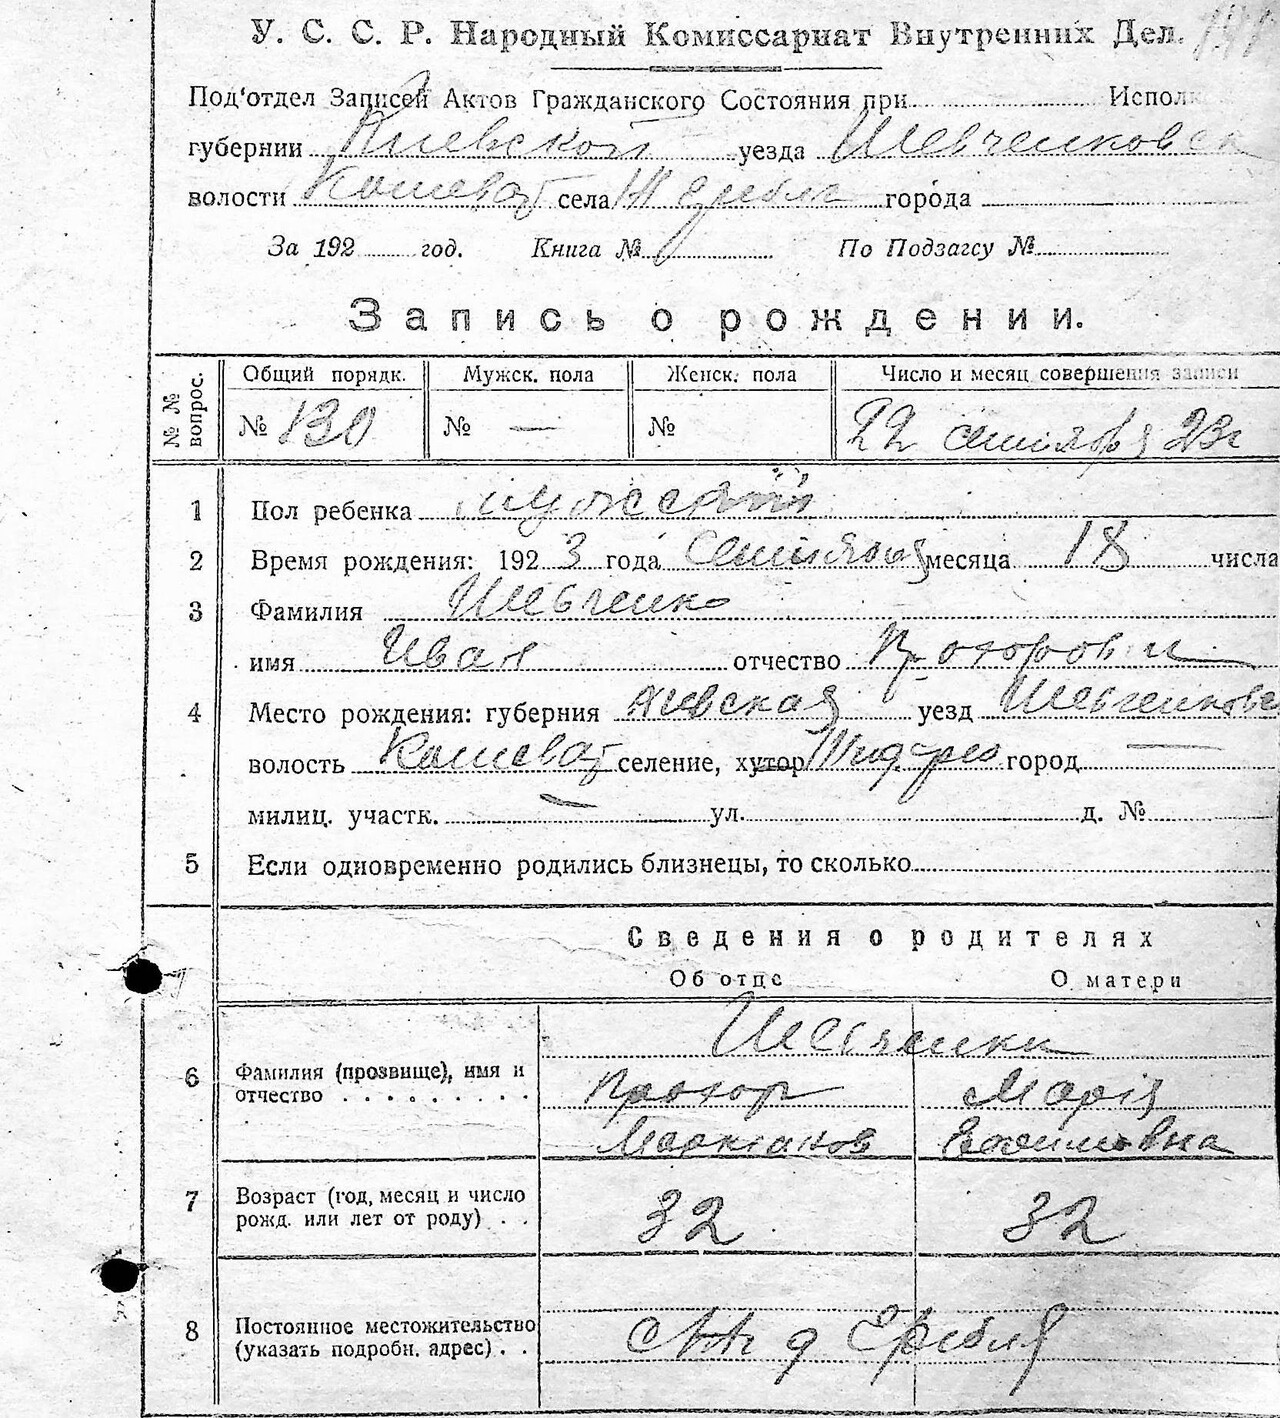 У. С. С. Р. Народный Комиссариат Внутренних Дел.
Под'отдел Записей Актов Гражданского Состояния при Исполк
губернии Киевской уезда Шевченковск
волости Кошеват села города
За 192 год. Книга № По Подзагсу №
Запись о рождении.
№ № вопрос. Общий порядк. Мужск. пола Женск. пола Число и месяц совершения записи
№ 130 № — № 22 сентября 23г
1 Пол ребенка мужской
2 Время рождения: 1923 года Сентября месяца 18 числа
3 Фамилия Шевченко
имя Иван отчество Прохорови
4 Место рождения: губерния Киевская уезд Шевченковск
волость Кошеват селение, хутор город —
милиц. участк. — ул. д. №
5 Если одновременно родились близнецы, то сколько
Сведения о родителях
Об отце О матери
Шевченки
6 Фамилия (прозвище), имя и
отчество . . . . . . . . . Прохор Марія
Василовна
7 Возраст (год, месяц и число
рожд. или лет от роду) . . 32 32
8 Постоянное местожительство
(указать подробн. адрес) . .